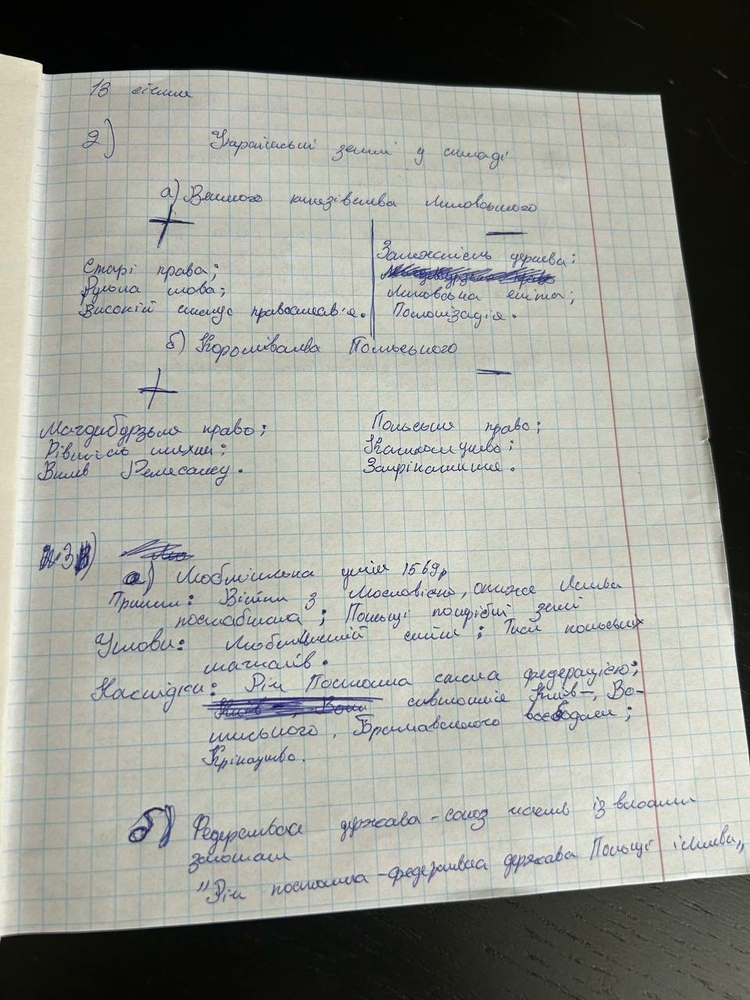 13 січня
2) Українські землі у складі
а) Великого князівства Литовського
+ —
Старі права;
Руська мова;
Високий статус православ'я.
Залежність держави;
Литовська еліта;
Полонізація.
б) Королівства Польського
+ —
Магдебурзьке право;
Рівність шляхти;
Вплив Ренесансу.
Польське право;
Католицтво;
Закріпачення.
№3)
а) Люблінська унія 1569р
Причини: Війни з Московією, отже Литва
послабшала; Польщі потрібні землі
Умови: Люблінський сейм; Тиск польських
магнатів.
Наслідки: Річ Посполита стала федерацією;
Київ-, Во-
линського, Брацлавського воєводств;
Кріпацтво.
б) Федеративна держава - союз земель із власними
законами
"Річ посполита - федеративна держава Польщі і Литви„